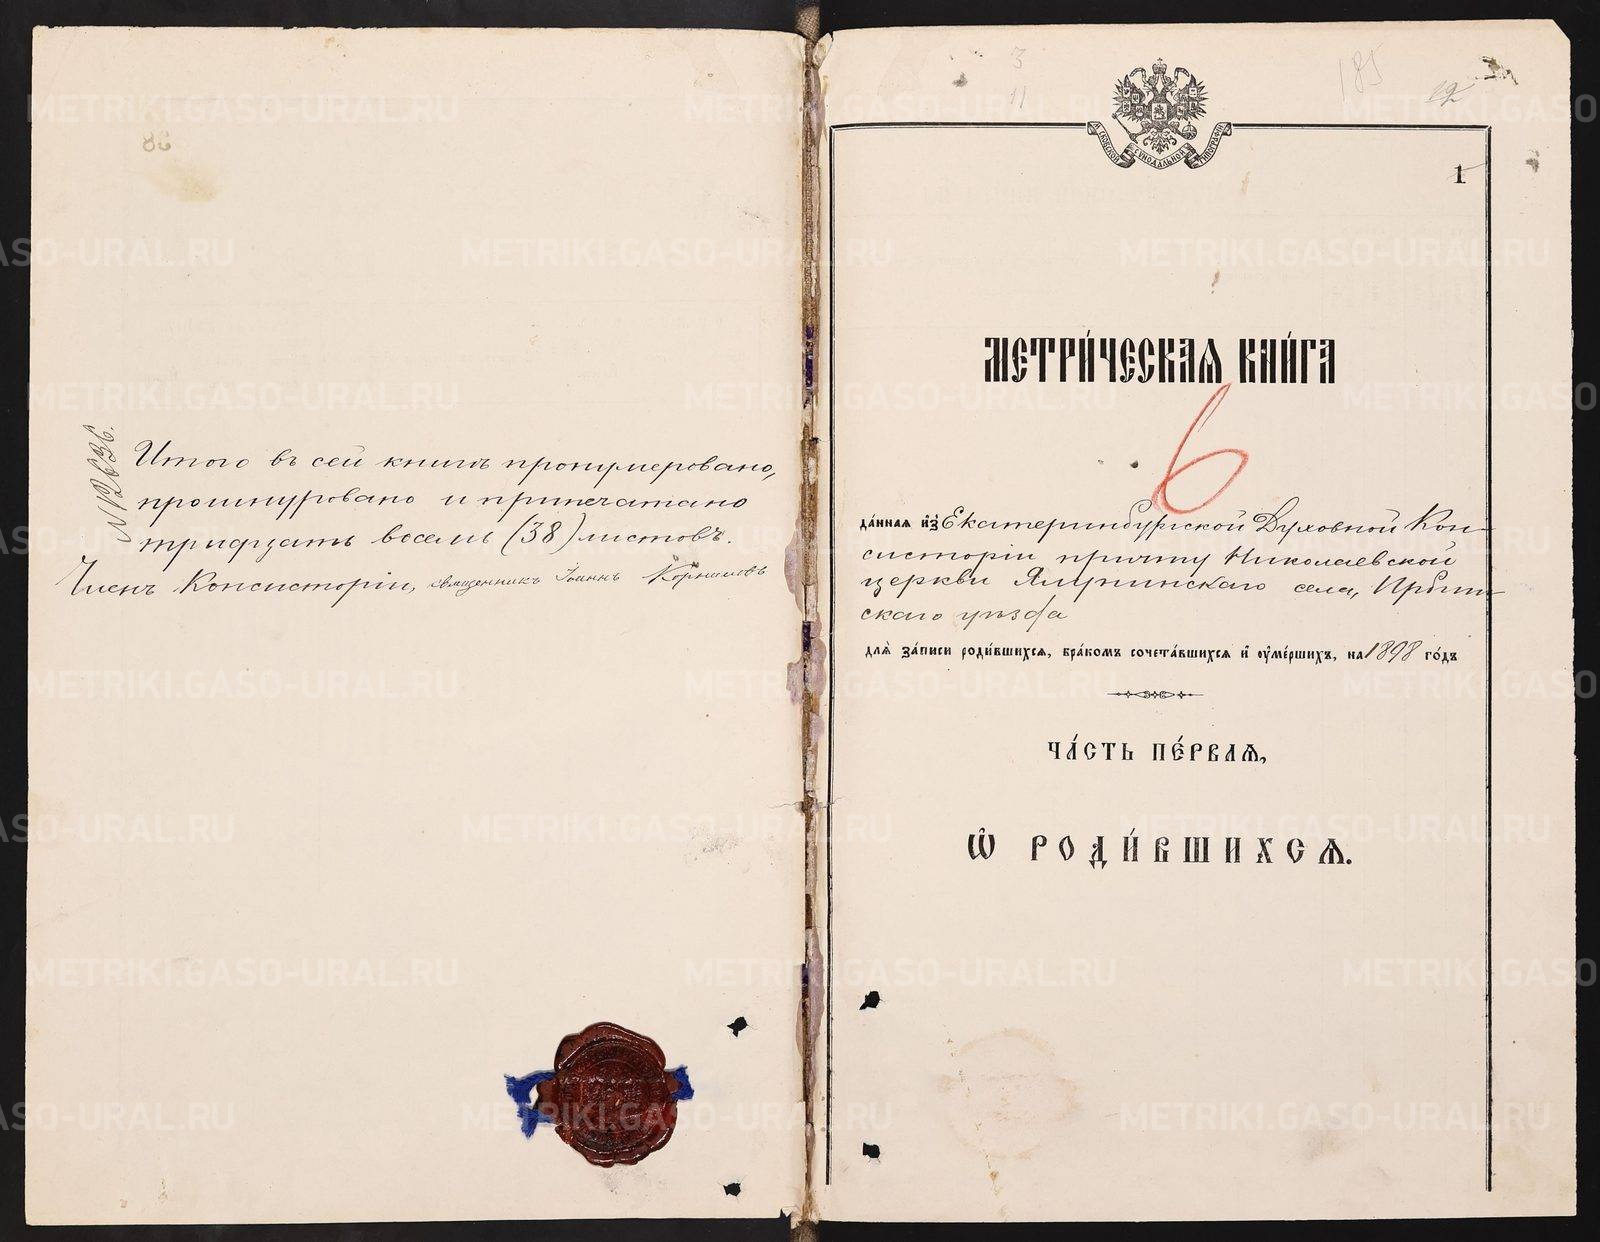 № 12636.
Итого въ сей книгѣ пронумеровано,
прошнуровано и припечатано
тридцать восемь (38) листовъ.
Членъ Консисторіи, священникъ Іоаннъ Корниловъ
38
3
11
185
12
МОСКОВСКОЙ СѴНОДАЛЬНОЙ ТИПОГРАФІИ
1
МЕТРИ́ЧЕСКАѦ КНИ́ГА
6
да́нная и҆зъ Екатеринбургской Духовной Кон-
систоріи причту Николаевской
церкви Ялунинскаго села, Ирбит-
скаго уѣзда
для̀ за́писи роди́вшихсѧ, бра́комъ сочета́вшихсѧ и҆ ᲂу҆ме́ршихъ, на 1898 го́дъ
ЧА́СТЬ ПЕ́РВАѦ,
Ѽ РОДИ́ВШИХСѦ.
METRIKI.GASO-URAL.RU